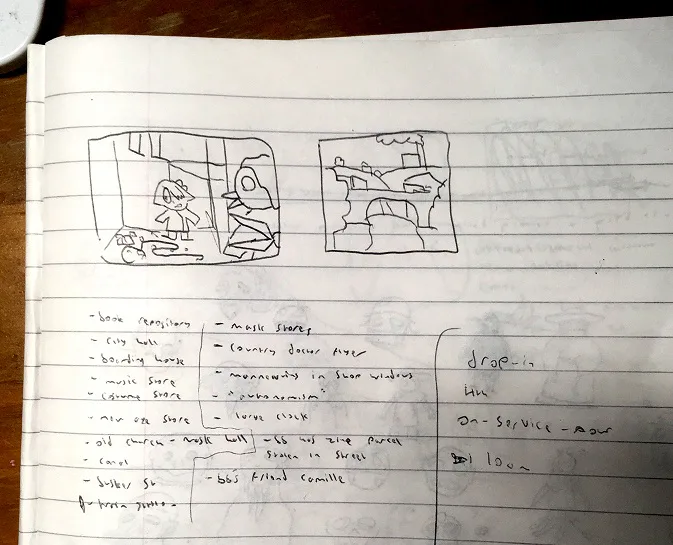 - book repository
- city hall
- boarding house
- music store
- costume store
- new age store
- old church - mask hall
- canal
- busker st
- train
- mask stores
- country doctor flyer
- mannequins in shop windows
- "automatism"
- large clock
- bb has zine parcel
stolen in street
- bb's friend camille
drop-in
on-service-
loan